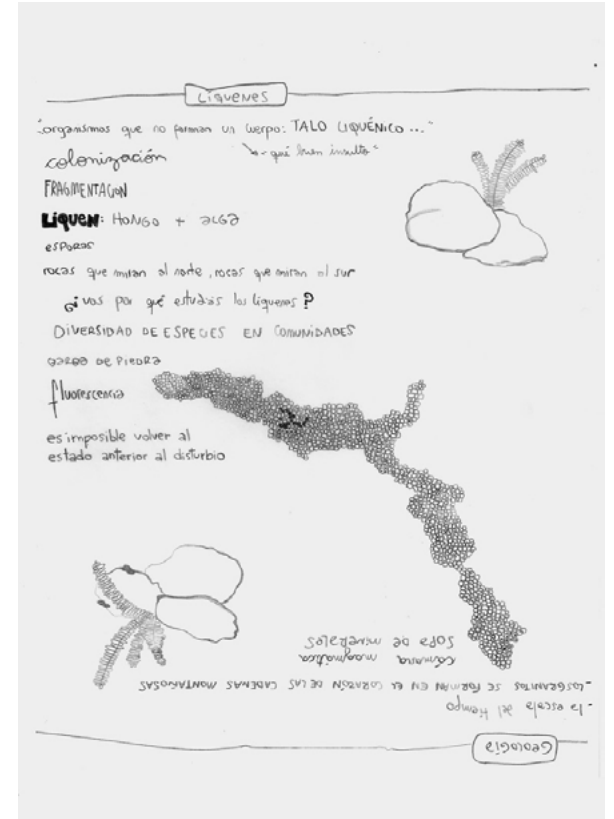 LíQUENES
"organismos que no forman un cuerpo: TALO LIQUÉNICO..."
↳ qué buen insulto"
colonización
FRAGMENTACION
LiQUEN: HONGO + ALGA
esporas
rocas que miran al norte, rocas que miran al sur
¿vos por qué estudiás los líquenes?
DIVERSIDAD DE ESPECIES EN COMUNIDADES
fluorescencia
es imposible volver al
estado anterior al disturbio
GEOLOGÍA
- la escala del tiempo
- LOS GRANITOS SE FORMAN EN EL CORAZÓN DE LAS CADENAS MONTAÑOSAS
cámara magmática
SOPA DE MINERALES